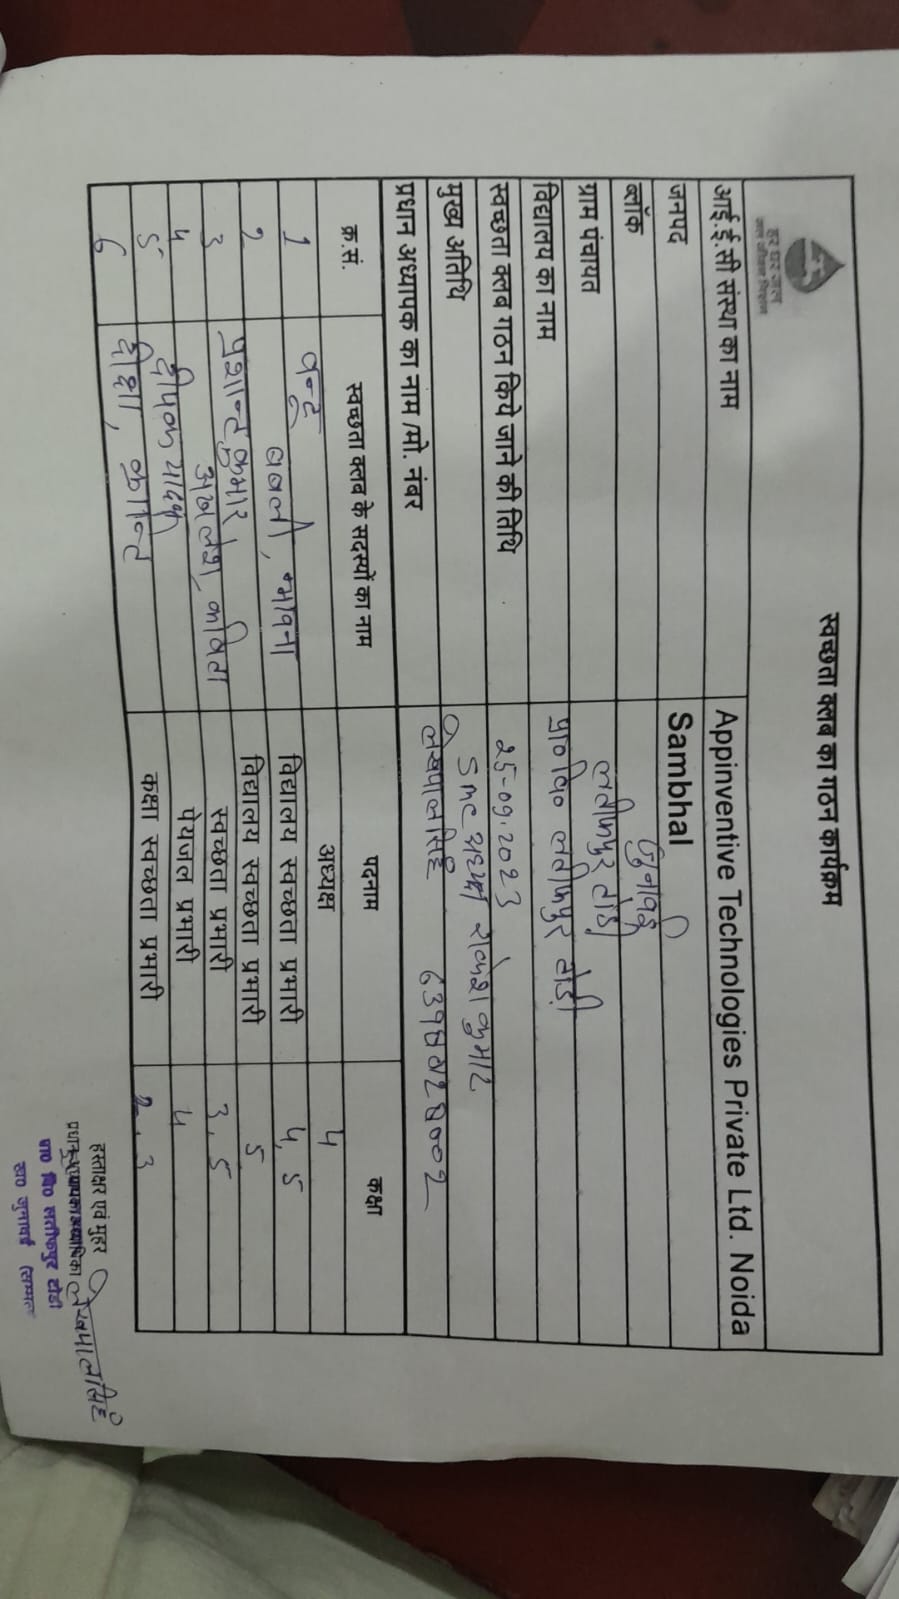 हर घर जल
जल जीवन मिशन
स्वच्छता क्लब का गठन कार्यक्रम
आई.ई.सी संस्था का नाम Appinventive Technologies Private Ltd. Noida
जनपद Sambhal
ब्लॉक जुनावई
ग्राम पंचायत लतीफपुर टोडी
विद्यालय का नाम प्रा० वि० लतीफपुर टोडी
स्वच्छता क्लब गठन किये जाने की तिथि 25-09.2023
मुख्य अतिथि SMC अध्यक्ष राकेश कुमार
प्रधान अध्यापक का नाम /मो. नंबर लेखपालसिंह
क्र.सं. स्वच्छता क्लब के सदस्यों का नाम पदनाम कक्षा
1 अध्यक्ष 4
2 बबली, भावना विद्यालय स्वच्छता प्रभारी 4, 5
3 प्रशान्त कुमार विद्यालय स्वच्छता प्रभारी 5
4 अखलेश, कविता स्वच्छता प्रभारी 3, 5
5 दीपक यादव पेयजल प्रभारी 4
6 कक्षा स्वच्छता प्रभारी 2, 3
हस्ताक्षर एवं मुहर लेखपालसिंह
प्रा० वि० लतीफपुर टोडी